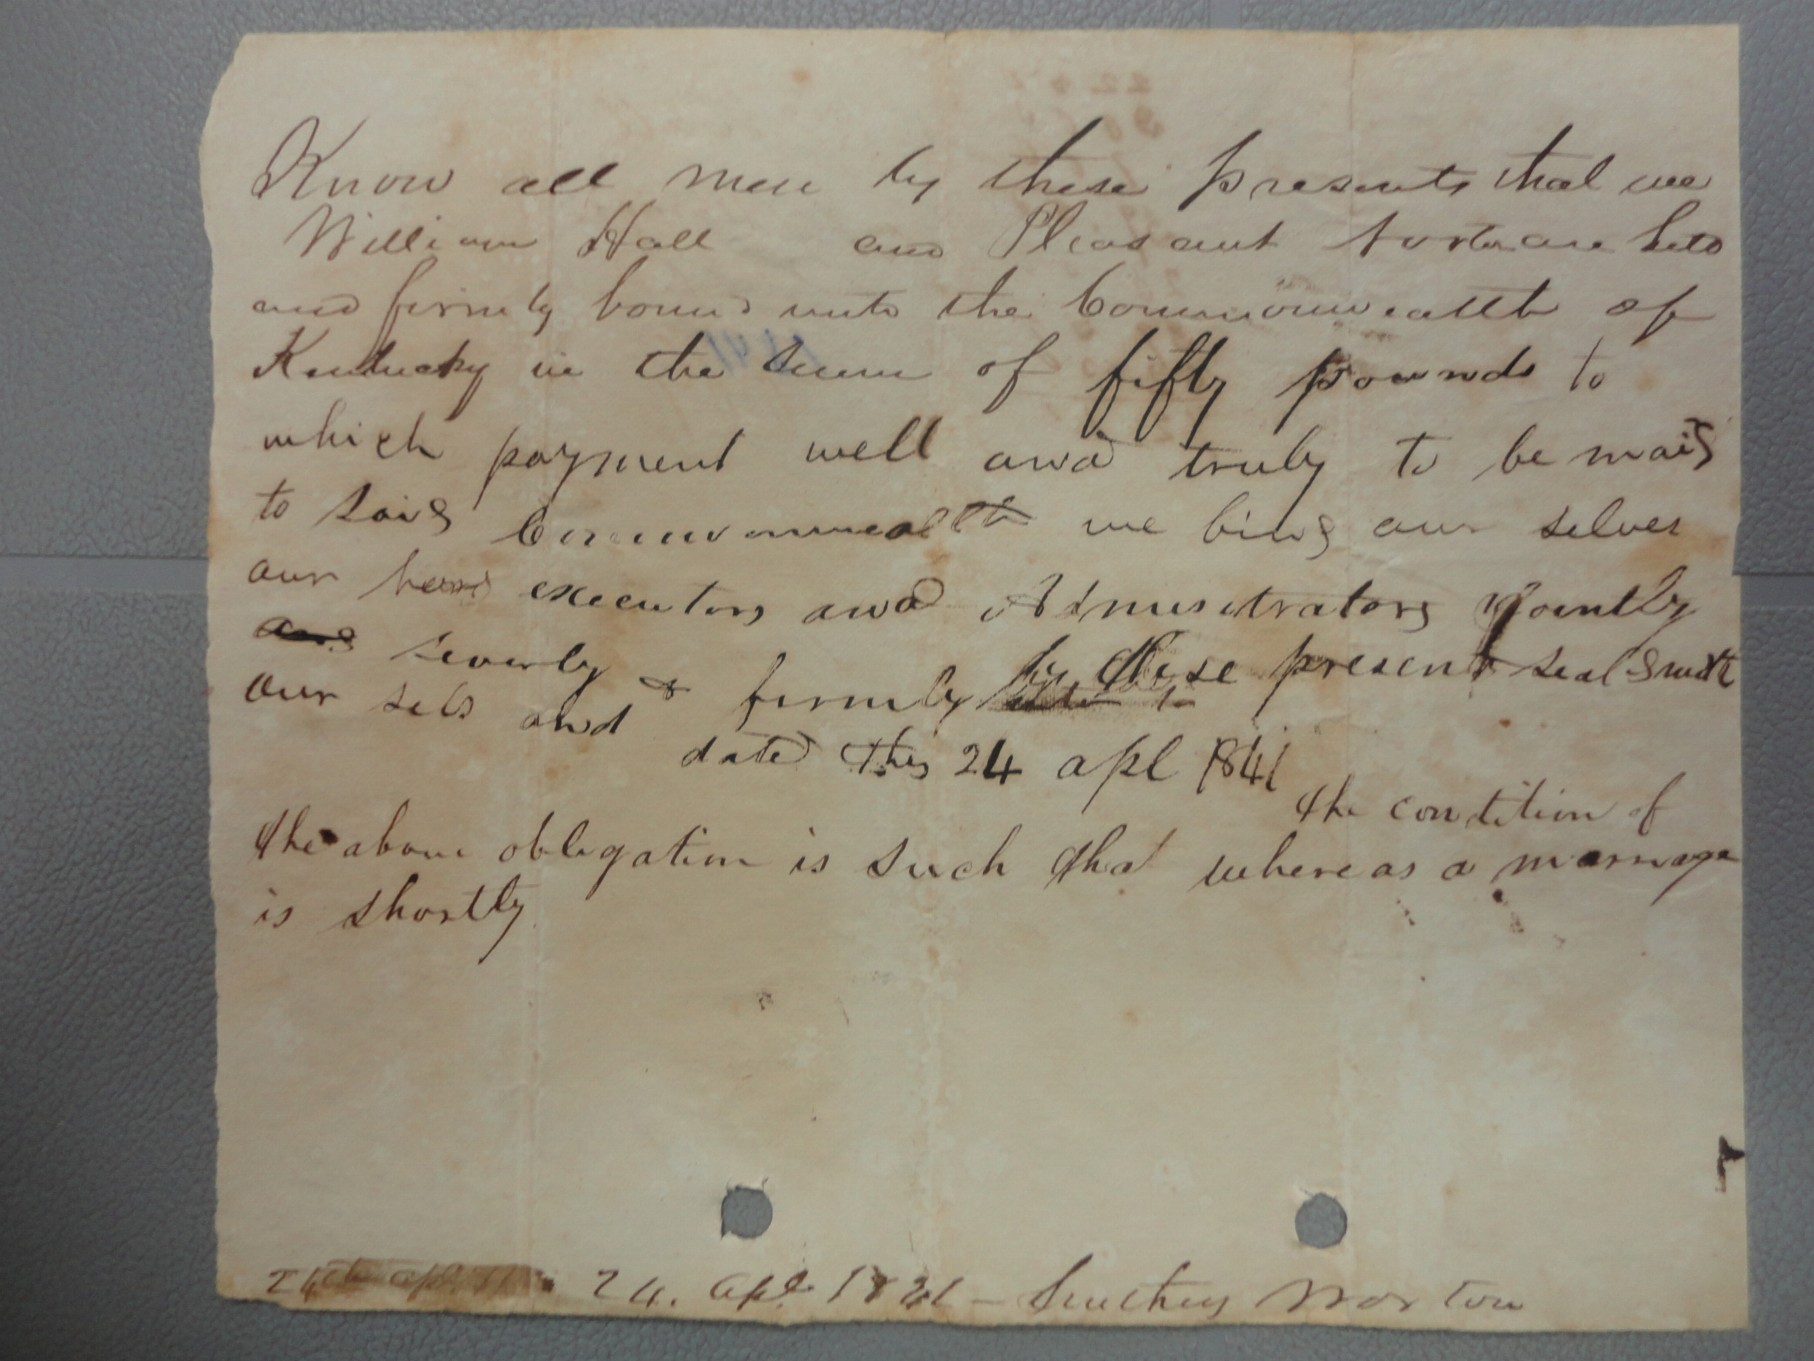 Know all men by these presents that we
William Hall and Pleasant are held
and firmly bound unto the Commonwealth of
Kentucky in the sum of fifty pounds to
which payment well and truly to be maid
to said Commonwealth we bind our selves
our heirs executors and Admisitrators Jointly
severly & firmly by these present seal & with
our sels and
dated this 24 apl 1841
the contition of
the above obligation is such that whereas a marriage
is shortly
24th apl 24. apl 1841 — Norton